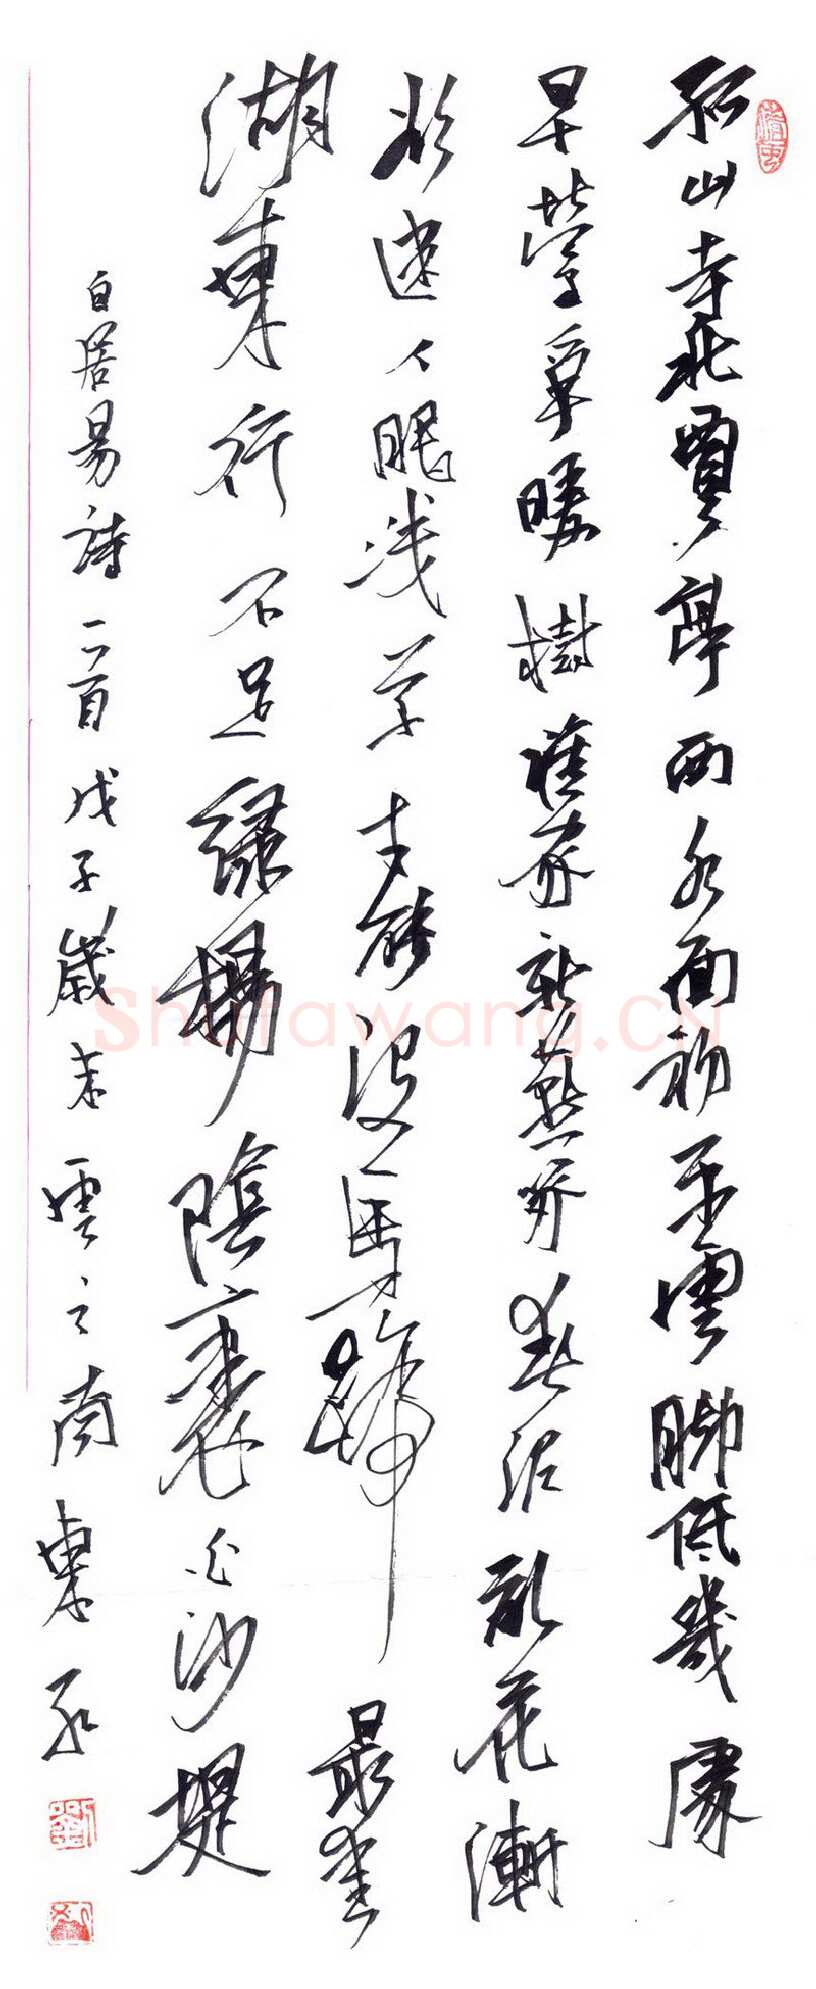 孤山寺北賈亭西水面初平雲脚低幾處
早鶯爭暖樹誰家新燕啄春泥亂花漸
欲迷人眼淺草才能没馬蹄最愛
湖東行不足綠楊陰裏白沙堤
白居易詩一首戊子歲末雲之南東
Shufawang.CN